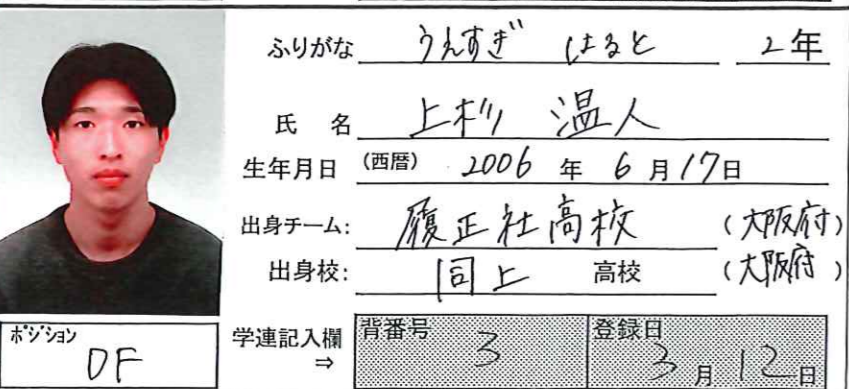 ふりがな うえすぎ はると 2年
氏名 上杉 温人
生年月日 (西暦) 2006 年 6 月 17日
出身チーム: 履正社高校 (大阪府)
出身校: 同上 高校 (大阪府)
ポジション DF
学連記入欄 ⇒
背番号 3
登録日 3月12日